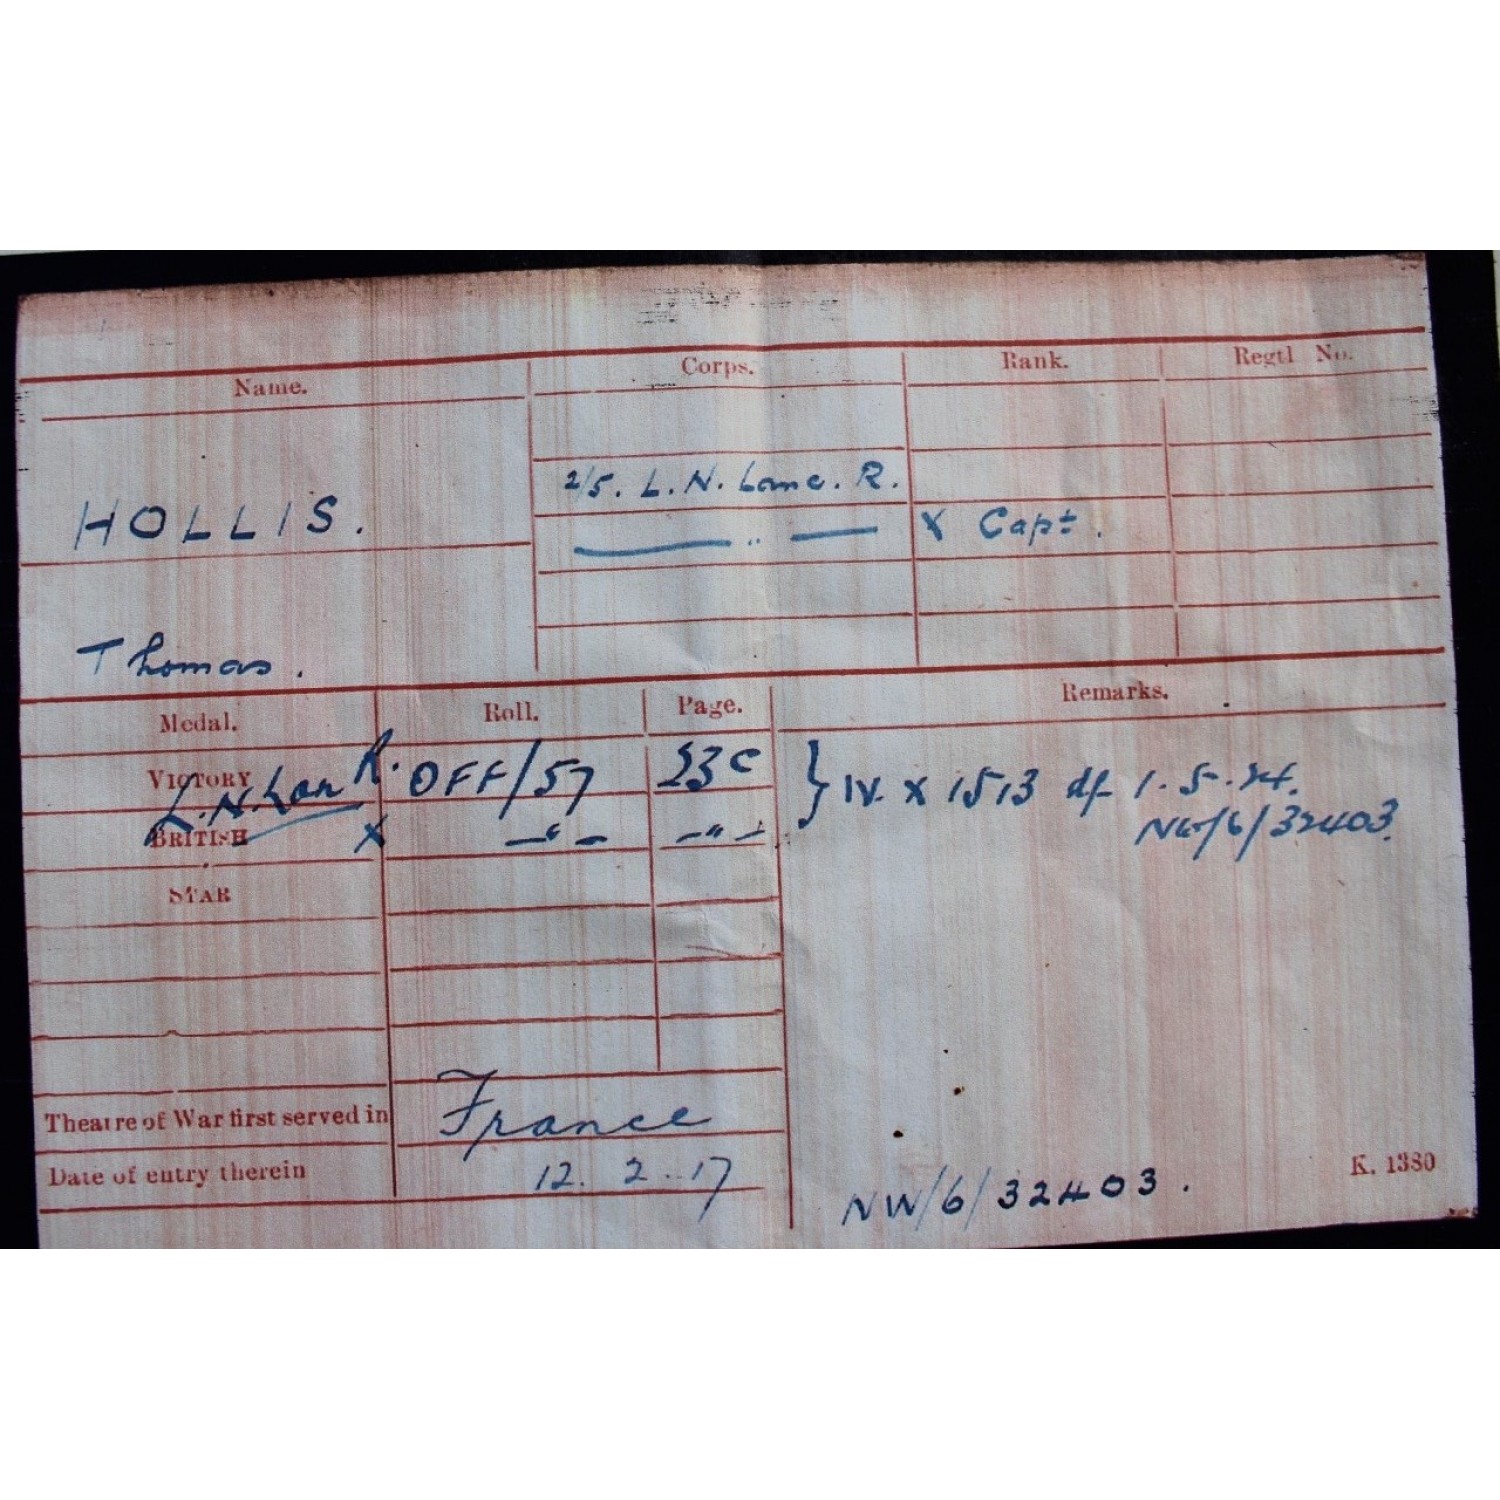 Name. Corps. Rank. Regtl No.
2/5. L. N. Lanc. R.
HOLLIS. " X Capt.
Thomas.
Medal. Roll. Page. Remarks.
VICTORY L.N.Lan R. OFF/57 23c } IV. X 1513 df 1.5.24.
NW/6/32403.
BRITISH X —"— —"—
STAR
Theatre of War first served in France
Date of entry therein 12.2.17
NW/6/32403.
K. 1380